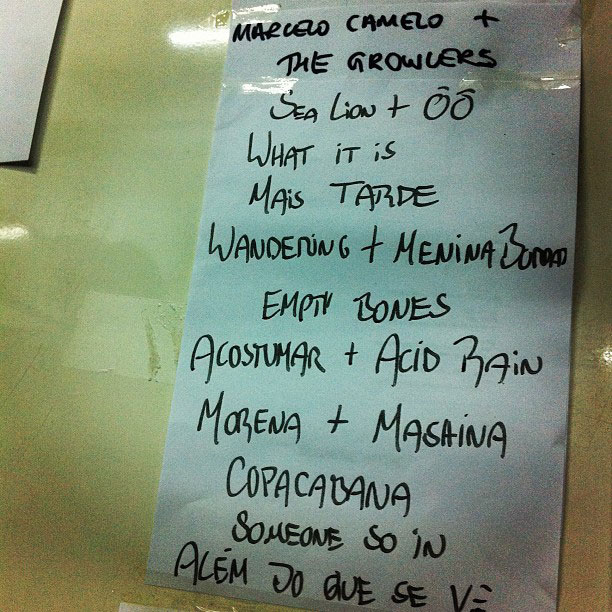 MARCELO CAMELO +
THE GROWLERS
SEA LION + ÔÔ
WHAT IT IS
MAIS TARDE
WANDERING + MENINA BORDADA
EMPTY BONES
ACOSTUMAR + ACID RAIN
MORENA + MAGAINA
COPACABANA
SOMEONE SO IN
ALÉM DO QUE SE VÊ